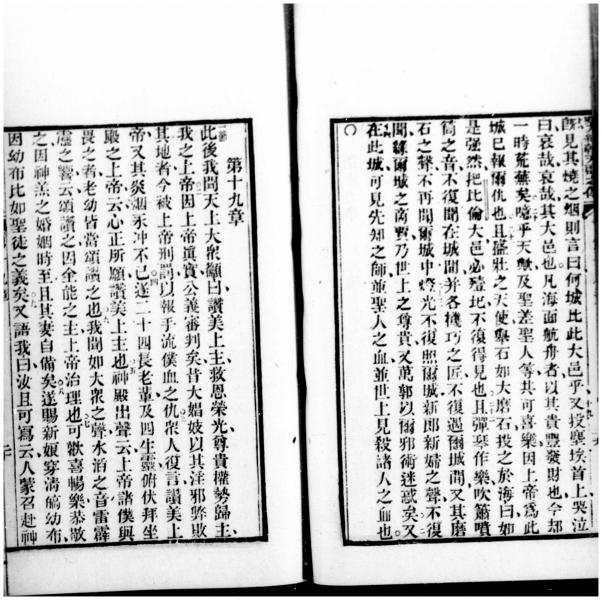 既見其燒之烟則言曰何城比此大邑乎又投塵埃首上哭泣
曰哀哉哀哉其大邑也凡海面航舟者以其貴豐發財也今却
一時荒蕪矣噫乎天歟及聖差聖人等其可喜樂因上帝為此
城已報爾仇也且盛壯之天使舉石如大磨石投之於海曰如
是强然把比倫大邑必殪圯不復得見也且彈琴作樂吹簫噴
筒之音不復聞在城間并各機巧之匠不復遇爾城間又其磨
石之聲不再聞爾城中燈光不復照爾城新郎新婦之聲不復
聞緣爾城之商賈乃世上之尊貴又萬郭以爾邪術迷惑矣又
在此城可見先知之師並聖人之血並世上見殺諸人之血也
第十九章
此後我聞天上大衆籲曰讚美上主救恩榮光尊貴權勢歸主
我之上帝因上帝眞實公義審判矣昔大娼妓以其淫邪弊敗
其地者今被上帝刑罰以報乎流僕血之仇衆人復言讚美上
帝又其炎烟永冲不已遂二十四長老董及四生靈俯伏拜坐
殿之上帝云心正所願讚美上主也神殿出聲云上帝諸僕與
畏之者老幼皆當頌讚之也我聞如大衆之聲水滔之音雷霹
靂之響云頌讚之因全能之主上帝治理也可歡喜暢樂恭敬
之因神羔之婚姻時至且其妻自備矣遂賜新娘穿濤縞幼布
因幼布比如聖徒之義矣又語我曰汝且可寫云人蒙召赴神